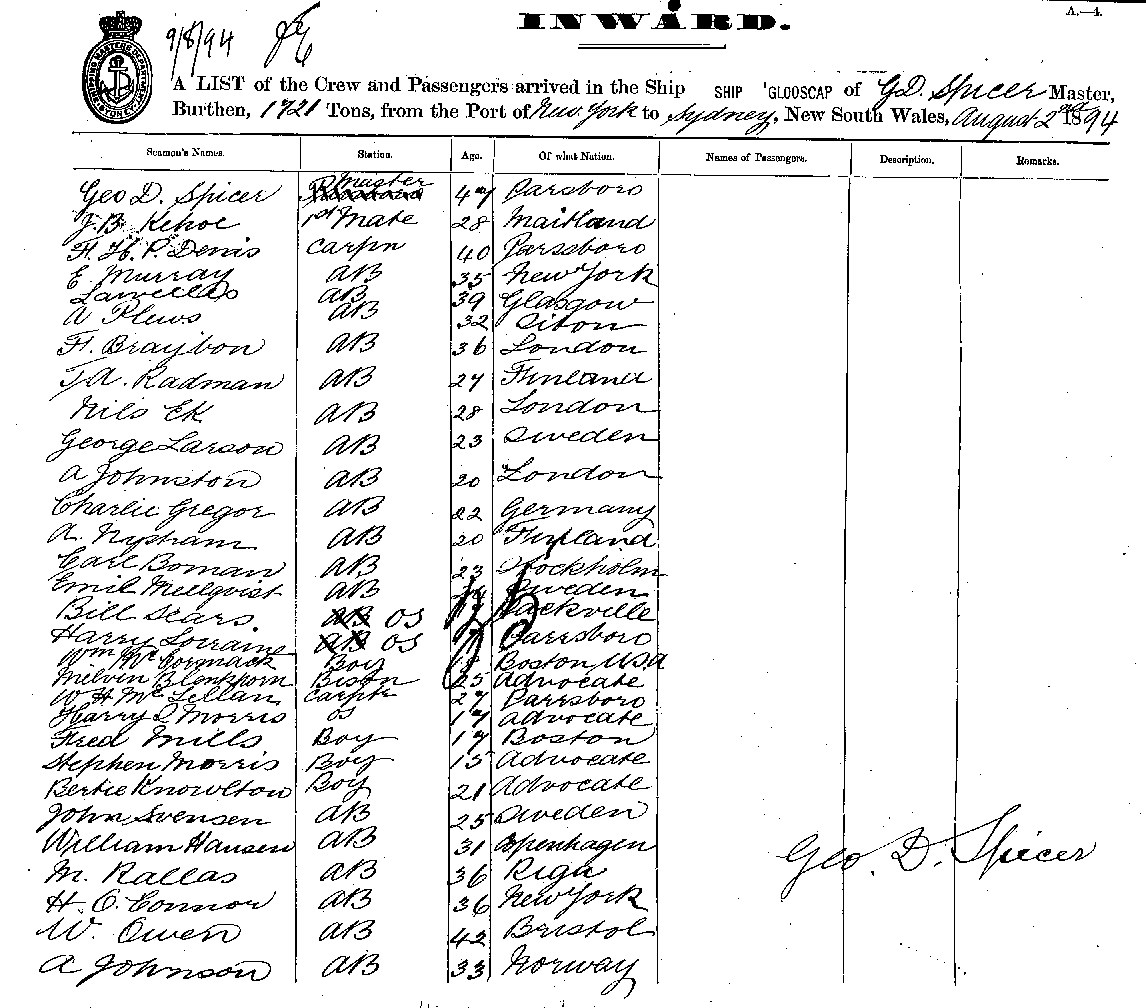 INWARD.
A.—4.
9/8/94
A LIST of the Crew and Passengers arrived in the Ship SHIP 'GLOOSCAP of G.D. Spicer Master,
Burthen, 1721 Tons, from the Port of New York to Sydney, New South Wales, August 2nd 1894
Seamen's Names. Station. Age. Of what Nation. Names of Passengers. Description. Remarks.
Geo D. Spicer Master 47 Parsboro
J.B. Kehoe 1st Mate 28 Maitland
F. H. P. Denis Carpn 40 Parsboro
E Murray AB 35 New York
AB 39 Glasgow
A Plews AB 32
F. Braybon AB 36 London
J A. Radman AB 27 Finland
Nils Ek AB 28 London
George Larson AB 23 Sweden
A Johnston AB 20 London
Charlie Gregor AB 22 Germany
A. Nysham AB 20 Finland
Carl Boman AB 23 Stockholm
Emil Mellqvist AB Sweden
Bill Sears AB OS Sackville
Harry Lorraine AB OS 17 Parrsboro
Wm McCormack Boy 18 Boston, USA
Milvin Blenkhorn Bosn 25 Advocate
W H McLellan Carptr 27 Parrsboro
Harry S Morris OS 17 Advocate
Fred Mills Boy 17 Boston
Stephen Morris Boy 15 Advocate
Bertie Knowlton Boy 21 Advocate
John Svensen AB 25 Sweden
William Hansen AB 31 Copenhagen
Geo. D. Spicer
M. Kallas AB 36 Riga
H. O. Connor AB 36 New York
W. Owen AB 42 Bristol
A Johnson AB 33 Norway